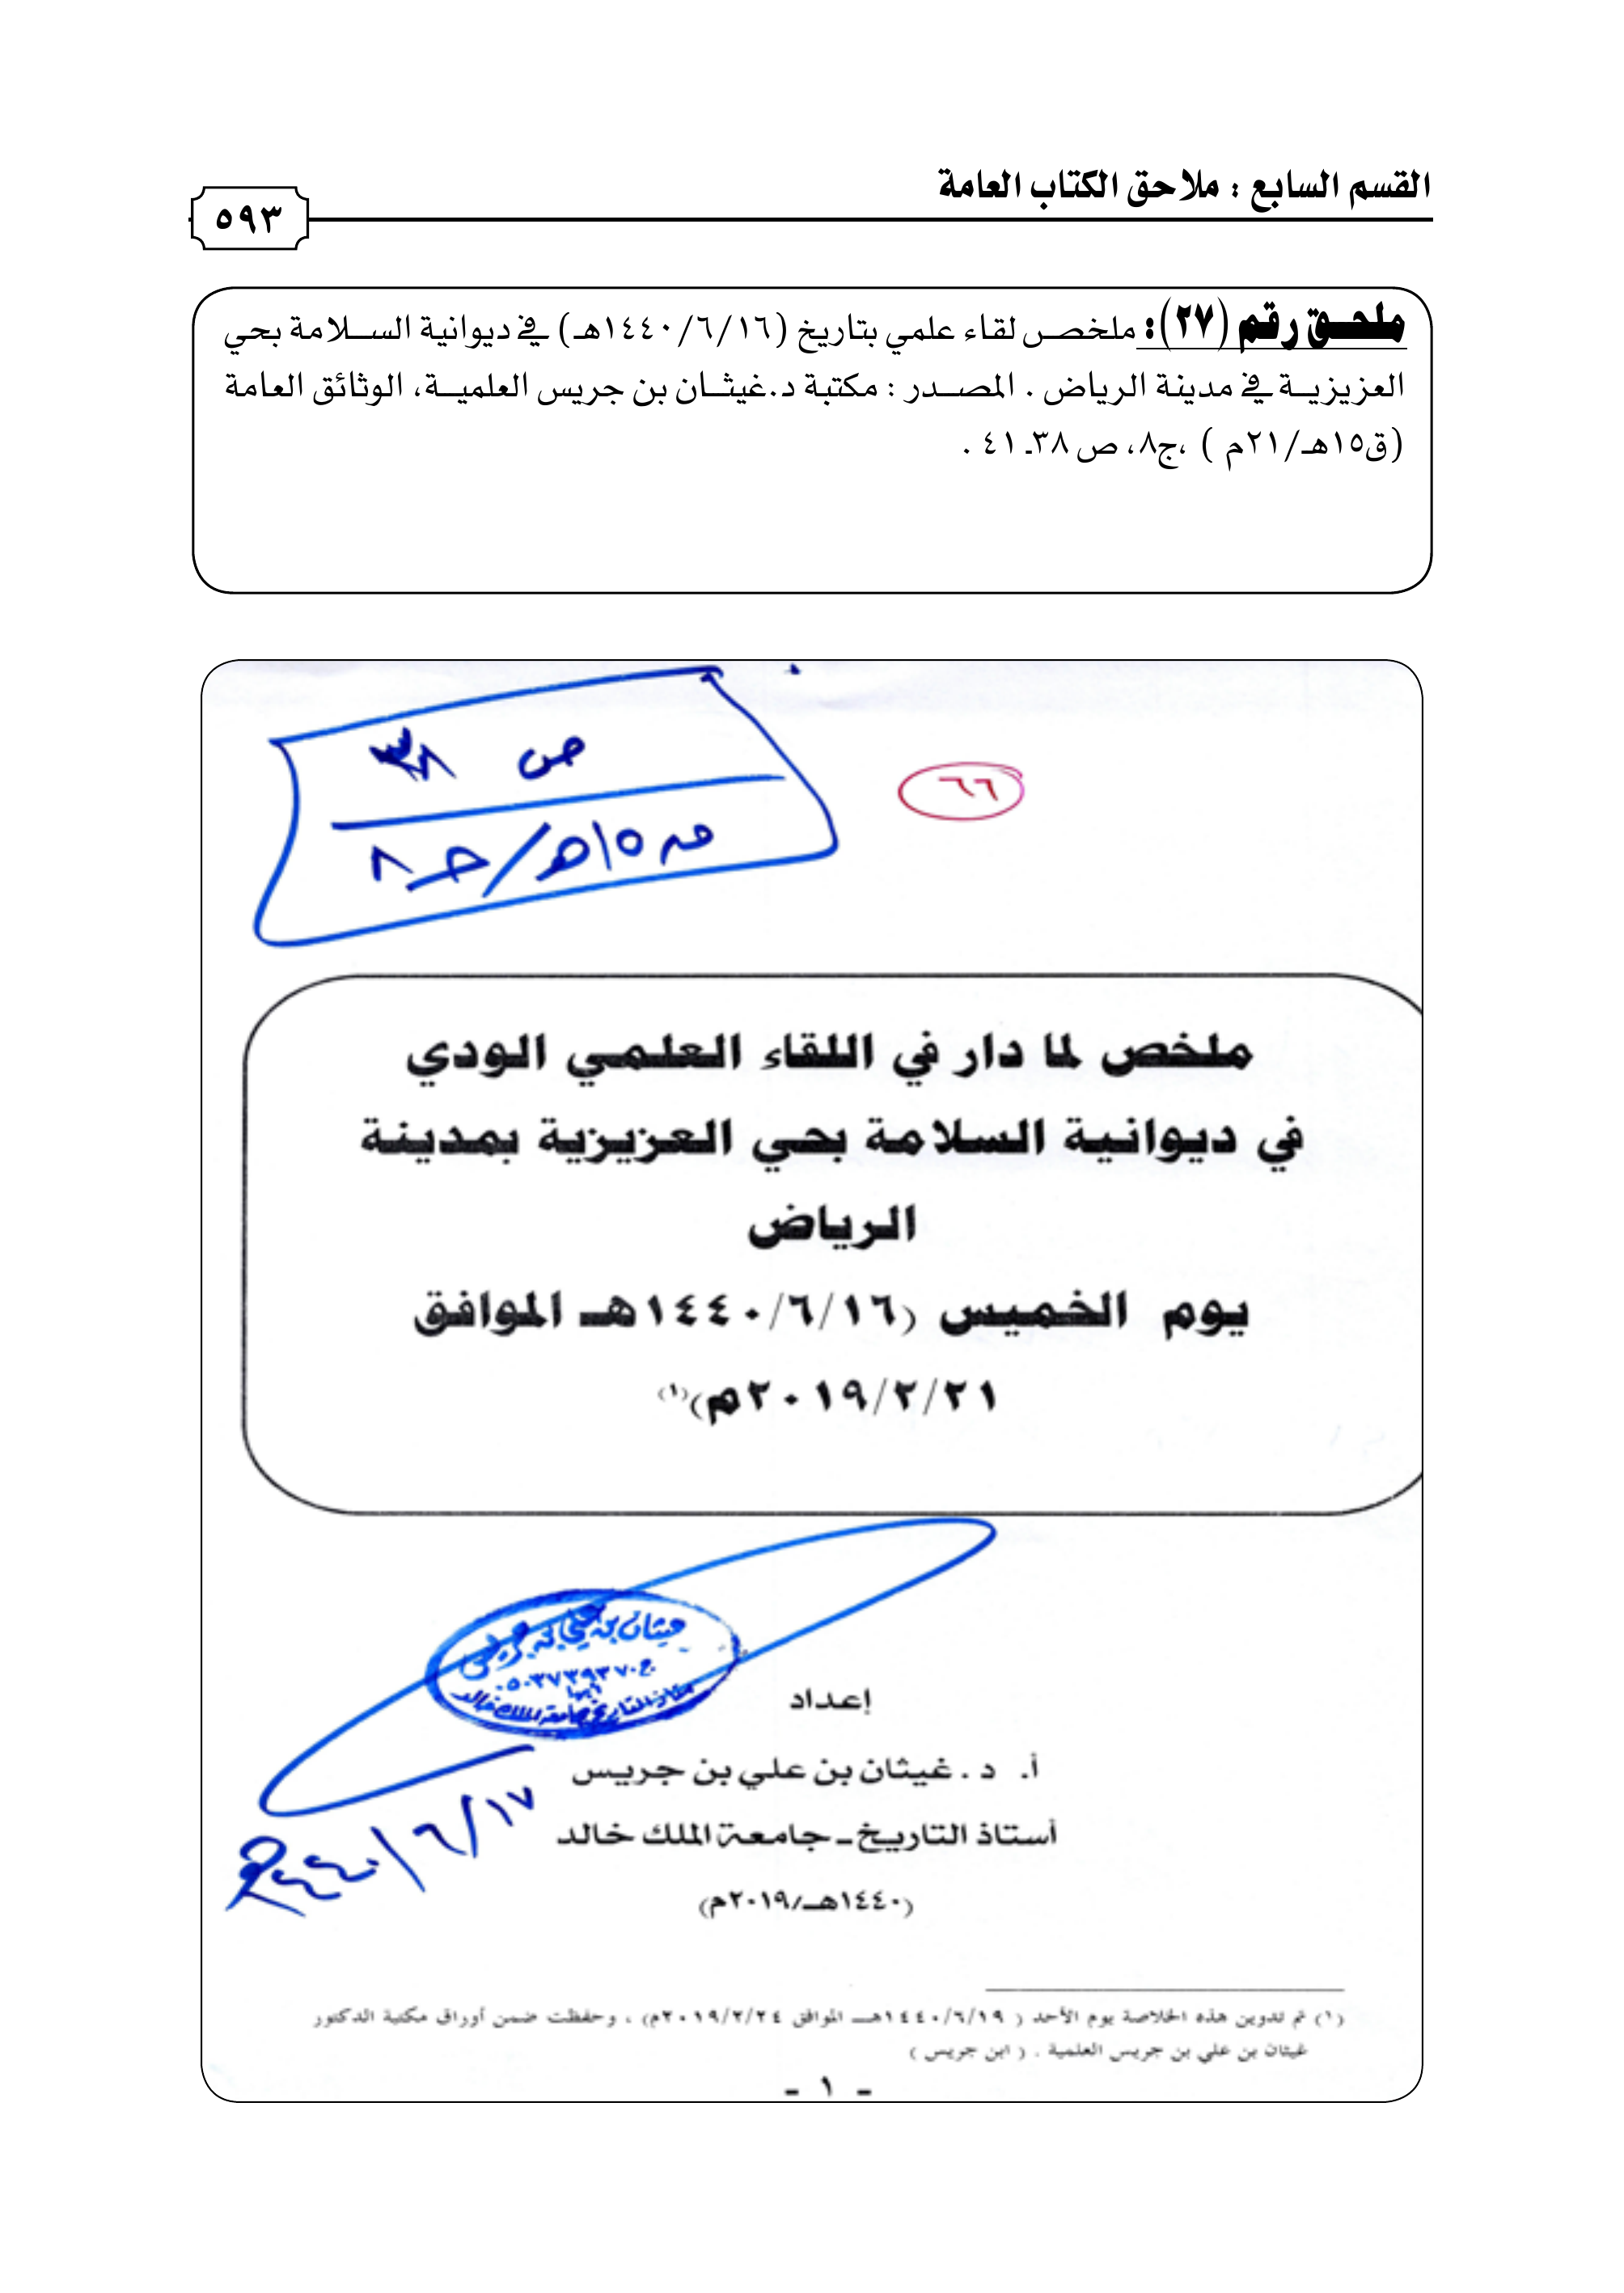 القسم السابع : ملاحق الكتاب العامة
٥٩٣
ملحق رقم (٢٧): ملخص لقاء علمي بتاريخ (١٤٤٠/٦/١٦هـ) في ديوانية السلامة بحي
العزيزية في مدينة الرياض . المصدر : مكتبة د.غيثان بن جريس العلمية، الوثائق العامة
(ق١٥هـ/٢١م ) ،ج٨، ص ٣٨ـ ٤١ .
ص ٣٨
ق١٥هـ/ج٨
٦٦
ملخص لما دار في اللقاء العلمي الودي
في ديوانية السلامة بحي العزيزية بمدينة
الرياض
يوم الخميس (١٤٤٠/٦/١٦هـ الموافق
٢٠١٩/٢/٢١م)(١)
غيثان بن علي بن جريس
ج.٠٥٠٣٧٣٩٣٧٠
أبها
إعداد
أ. د . غيثان بن علي بن جريس
أستاذ التاريخ ـ جامعة الملك خالد
(١٤٤٠هـ/٢٠١٩م)
١٤٤٠/٦/١٧هـ
(١) تم تدوين هذه الخلاصة يوم الأحد ( ١٤٤٠/٦/١٩هـ الموافق ٢٠١٩/٢/٢٤م) ، وحفظت ضمن أوراق مكتبة الدكتور
غيثان بن علي بن جريس العلمية . ( ابن جريس )
- ١ -